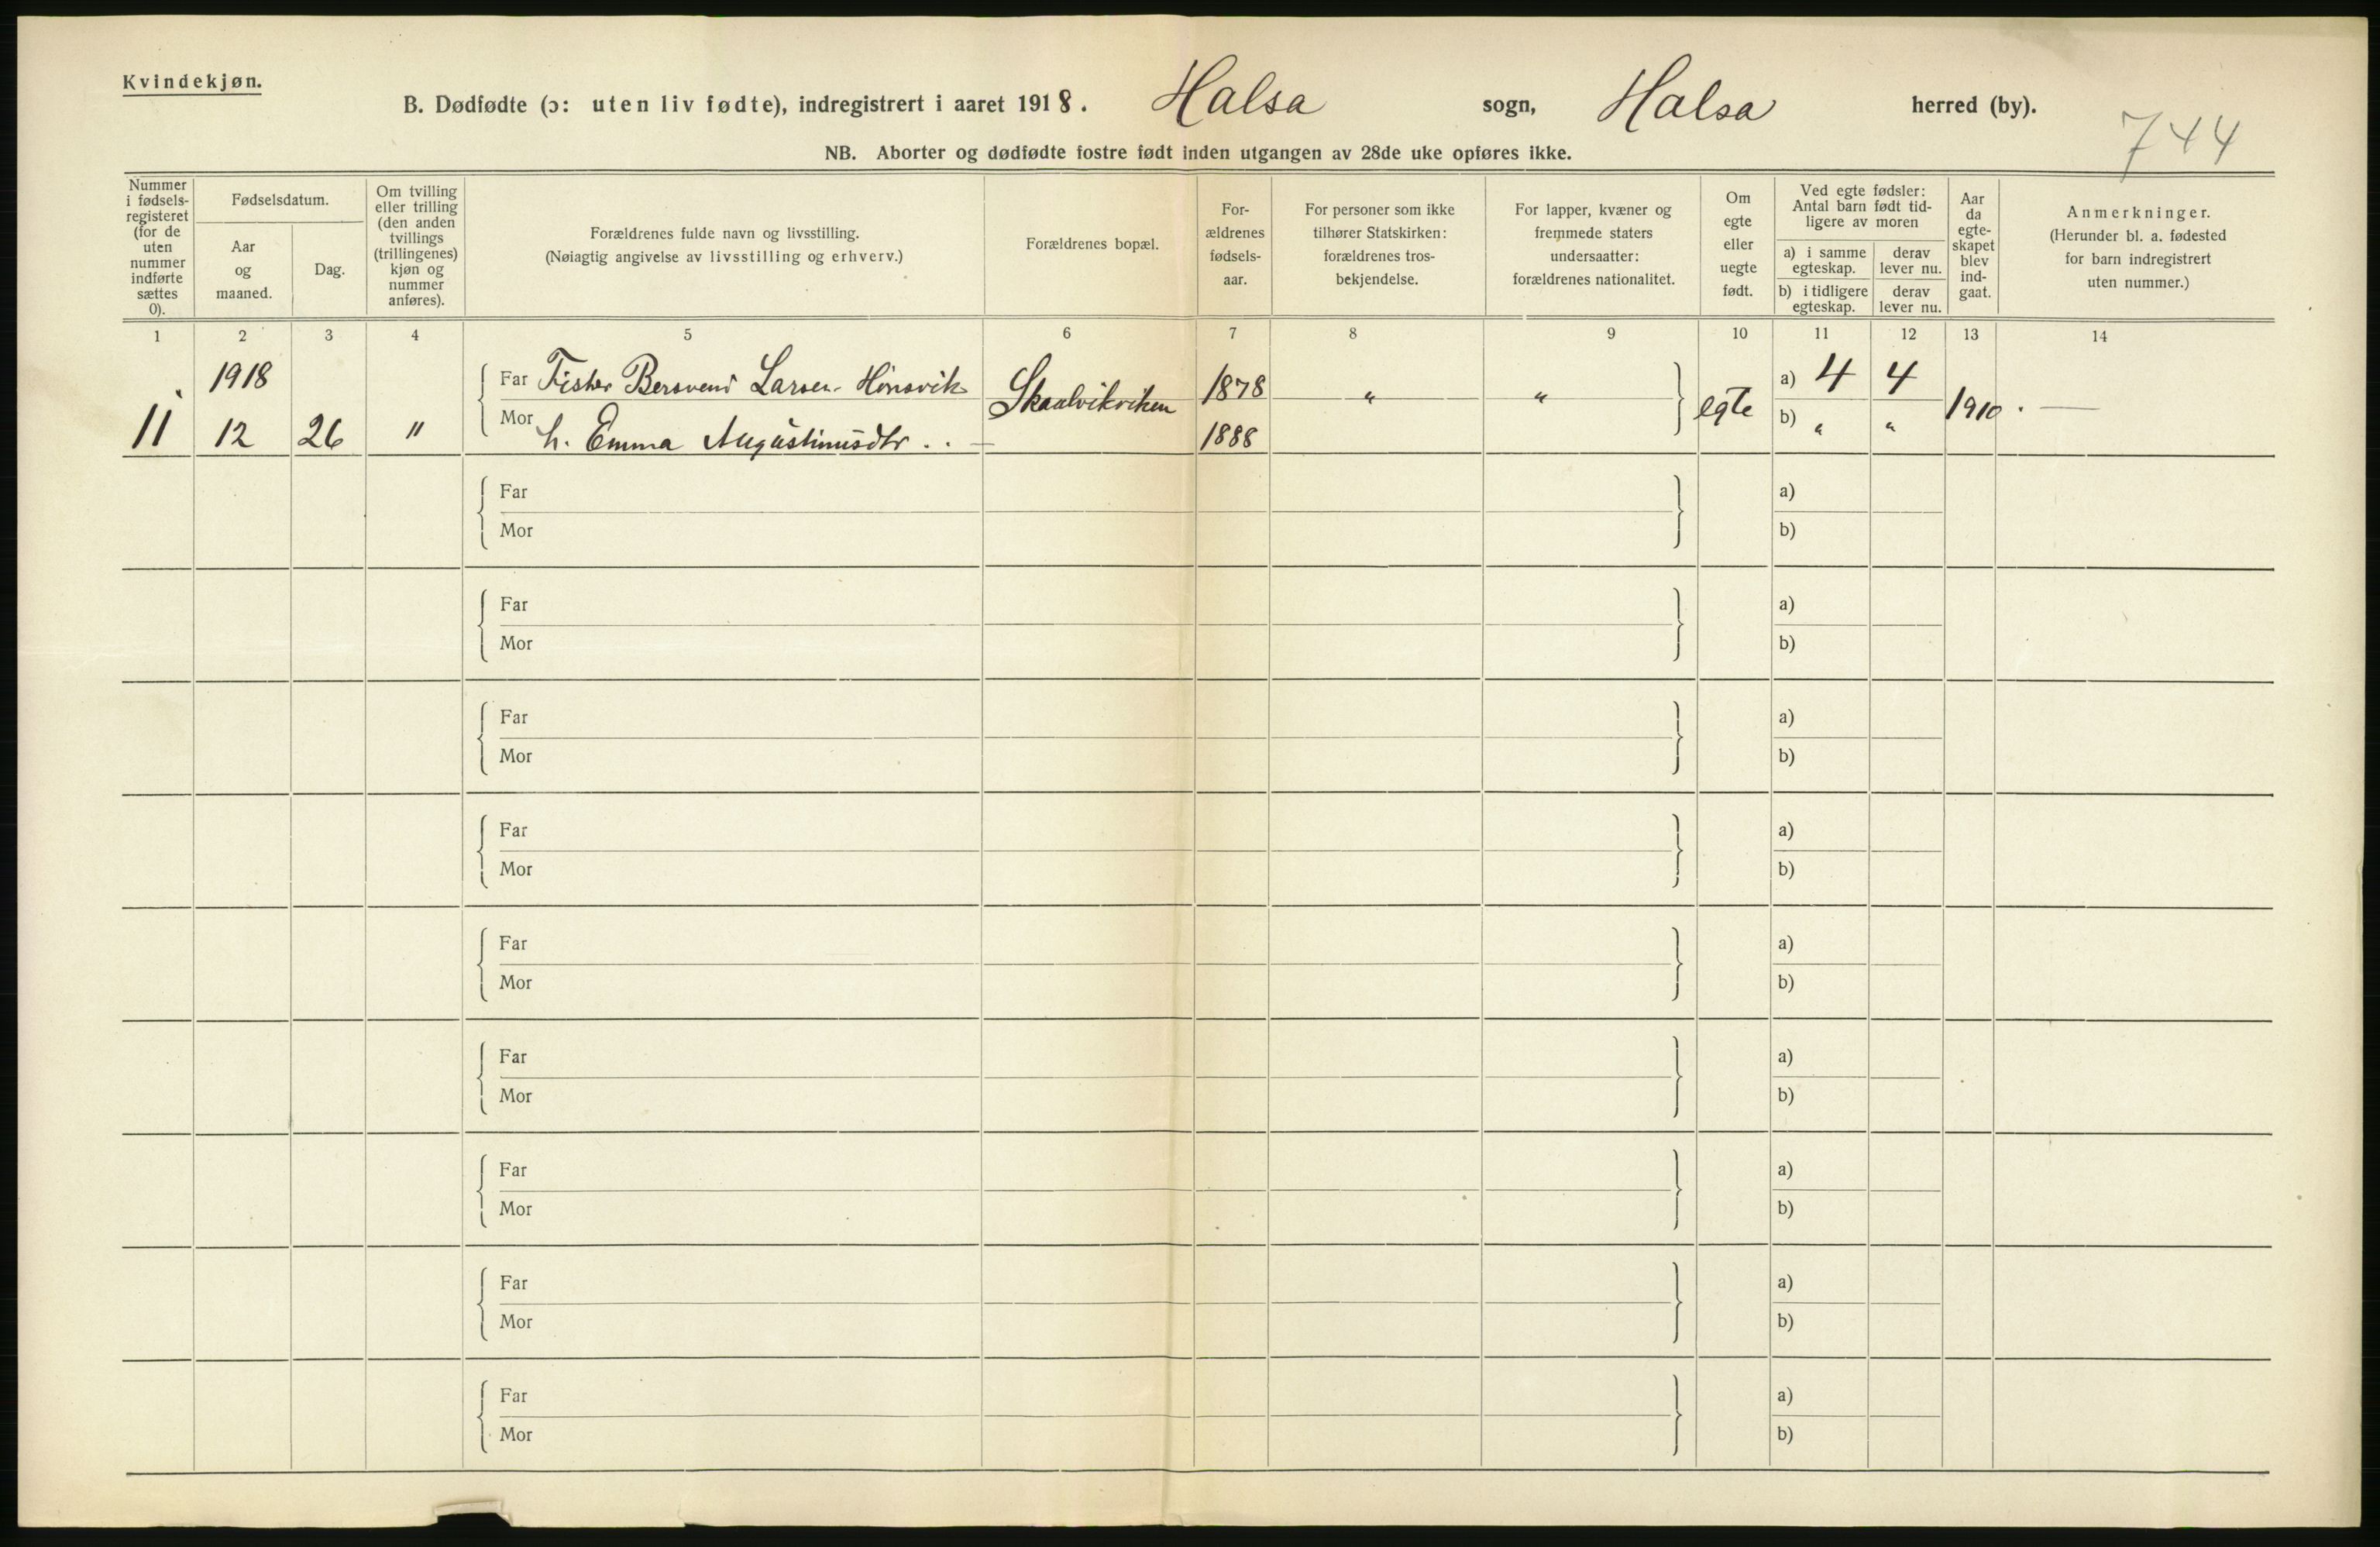 Kvindekjøn.
B. Dødfødte (ɔ: uten liv fødte), indregistrert i aaret 1918. Halsa sogn, Halsa herred (by).
744
NB. Aborter og dødfødte fostre født inden utgangen av 28de uke opføres ikke.
Nummer i fødsels-registeret (for de uten nummer indførte sættes 0).
Fødselsdatum.
Aar og maaned.
Dag.
Om tvilling eller trilling (den anden tvillings (trillingenes) kjøn og nummer anføres).
Forældrenes fulde navn og livsstilling.
(Nøiagtig angivelse av livsstilling og erhverv.)
Forældrenes bopæl.
For-ældrenes fødsels-aar.
For personer som ikke tilhører Statskirken: forældrenes tros-bekjendelse.
For lapper, kvæner og fremmede staters undersaatter: forældrenes nationalitet.
Om egte eller uegte født.
Ved egte fødsler: Antal barn født tid-ligere av moren
a) i samme egteskap.
derav lever nu.
b) i tidligere egteskap.
derav lever nu.
Aar da egte-skapet blev ind-gaat.
Anmerkninger.
(Herunder bl. a. fødested for barn indregistrert uten nummer.)
1 2 3 4 5 6 7 8 9 10 11 12 13 14
1918 Far Fisker Bersvend Larsen Hönsvik Skaalvikviken 1878 " " egte a) 4 4 1910 . —
11 12 26 " Mor h. Emma Augustinusdtr. . — 1888 b) " "
Far a)
Mor b)
Far a)
Mor b)
Far a)
Mor b)
Far a)
Mor b)
Far a)
Mor b)
Far a)
Mor b)
Far a)
Mor b)
Far a)
Mor b)
Far a)
Mor b)